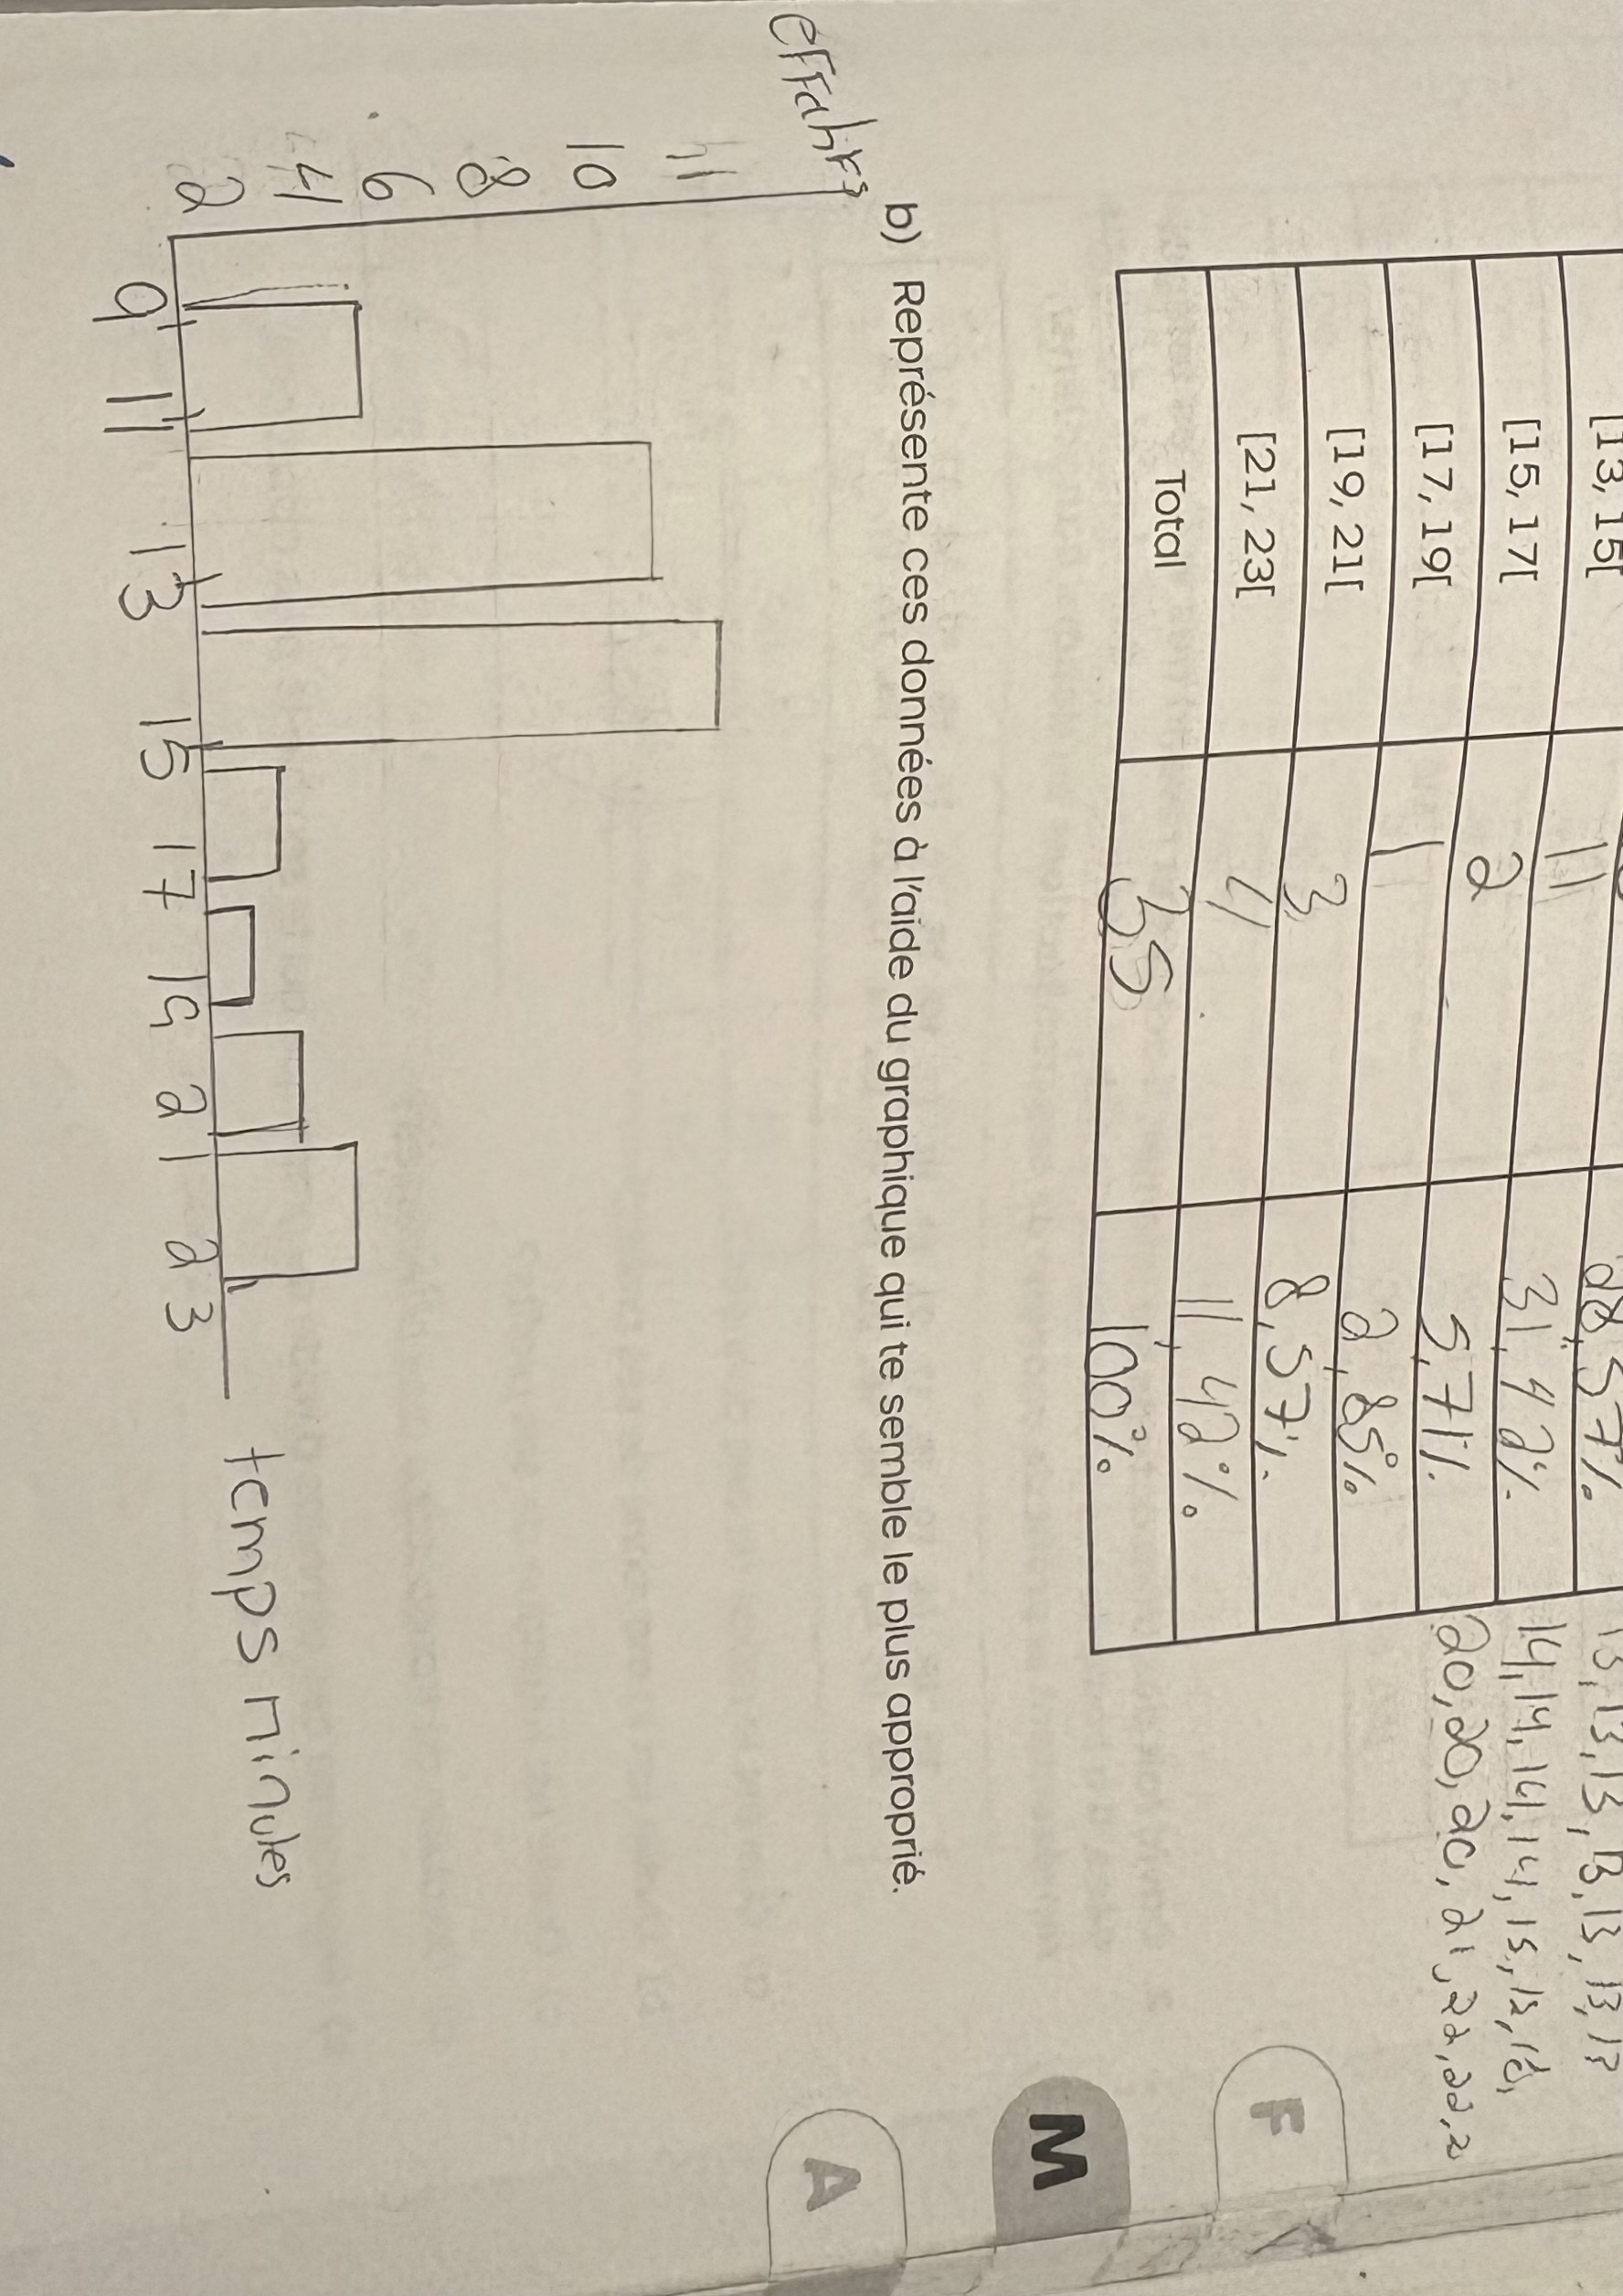 [13, 15[
28,57%
13, 13, 13, 13, 13, 13, 13
[15, 17[ 11 31,42%
14, 14, 14, 14, 14, 15, 15, 16,
[17, 19[ 2 5,71%
20, 20, 20, 21, 22, 22, 2
[19, 21[ 1 2,85%
[21, 23[ 3 8,57%
Total 4 11,42%
35 100%
b) Représente ces données à l'aide du graphique qui te semble le plus approprié.
11
10
8
6
4
2
9 11 13 15 17 19 21 23
temps minutes
F
M
A